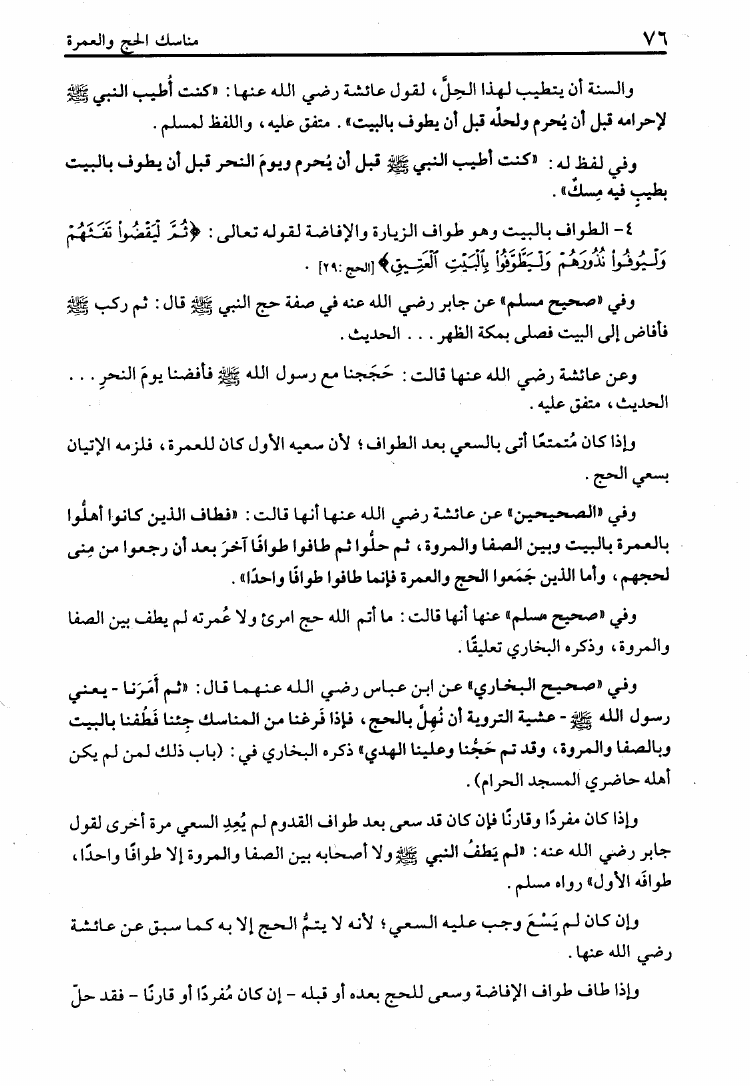 ٧٦
مناسك الحج والعمرة
والسنة أن يتطيب لهذا الحِلَّ، لقول عائشة رضي الله عنها: «كنت أُطيب النبي ﷺ
لإحرامه قبل أن يُحرم ولحلّه قبل أن يطوف بالبيت». متفق عليه، واللفظ لمسلم.
وفي لفظ له: «كنت أطيب النبي ﷺ قبل أن يُحرم ويومَ النحر قبل أن يطوف بالبيت
بطيبٍ فيه مِسكٌ».
٤- الطواف بالبيت وهو طواف الزيارة والإفاضة لقوله تعالى: ﴿ثُمَّ لْيَقْضُوا تَفَثَهُمْ
وَلْيُوفُوا نُذُورَهُمْ وَلْيَطَّوَّفُوا بِالْبَيْتِ الْعَتِيقِ﴾ [الحج: ٢٩].
وفي «صحيح مسلم» عن جابر رضي الله عنه في صفة حج النبي ﷺ قال: ثم ركب ﷺ
فأفاض إلى البيت فصلى بمكة الظهر... الحديث.
وعن عائشة رضي الله عنها قالت: حَجَجنا مع رسول الله ﷺ فأفضنا يومَ النحرِ...
الحديث، متفق عليه.
وإذا كان مُتمتعًا أتى بالسعي بعد الطواف؛ لأن سعيه الأول كان للعمرة، فلزمه الإتيان
بسعي الحج.
وفي «الصحيحين» عن عائشة رضي الله عنها أنها قالت: «فطاف الذين كانوا أهلُّوا
بالعمرة بالبيت وبين الصفا والمروة، ثم حلُّوا ثم طافوا طوافًا آخرَ بعد أن رجعوا من مِنى
لحجهم، وأما الذين جَمَعوا الحج والعمرة فإنما طافوا طوافًا واحدًا».
وفي «صحيح مسلم» عنها أنها قالت: ما أتم الله حج امرئ ولا عُمرته لم يطف بين الصفا
والمروة، وذكره البخاري تعليقًا.
وفي «صحيح البخاري» عن ابن عباس رضي الله عنهما قال: «ثم أَمَرَنا - يعني
رسول الله ﷺ - عشية التروية أن نُهِلَّ بالحج، فإذا فَرغنا من المناسك جِئنا فَطُفنا بالبيت
وبالصفا والمروة، وقد تم حَجُّنا وعلينا الهدي» ذكره البخاري في: (باب ذلك لمن لم يكن
أهله حاضري المسجد الحرام).
وإذا كان مفردًا وقارنًا فإن كان قد سعى بعد طواف القدوم لم يُعِدِ السعي مرة أخرى لقول
جابر رضي الله عنه: «لم يَطفُ النبي ﷺ ولا أصحابه بين الصفا والمروة إلا طوافًا واحدًا،
طوافَه الأول» رواه مسلم.
وإن كان لم يَسْعَ وجب عليه السعي؛ لأنه لا يتمُّ الحج إلا به كما سبق عن عائشة
رضي الله عنها.
وإذا طاف طواف الإفاضة وسعى للحج بعده أو قبله - إن كان مُفردًا أو قارنًا - فقد حلّ